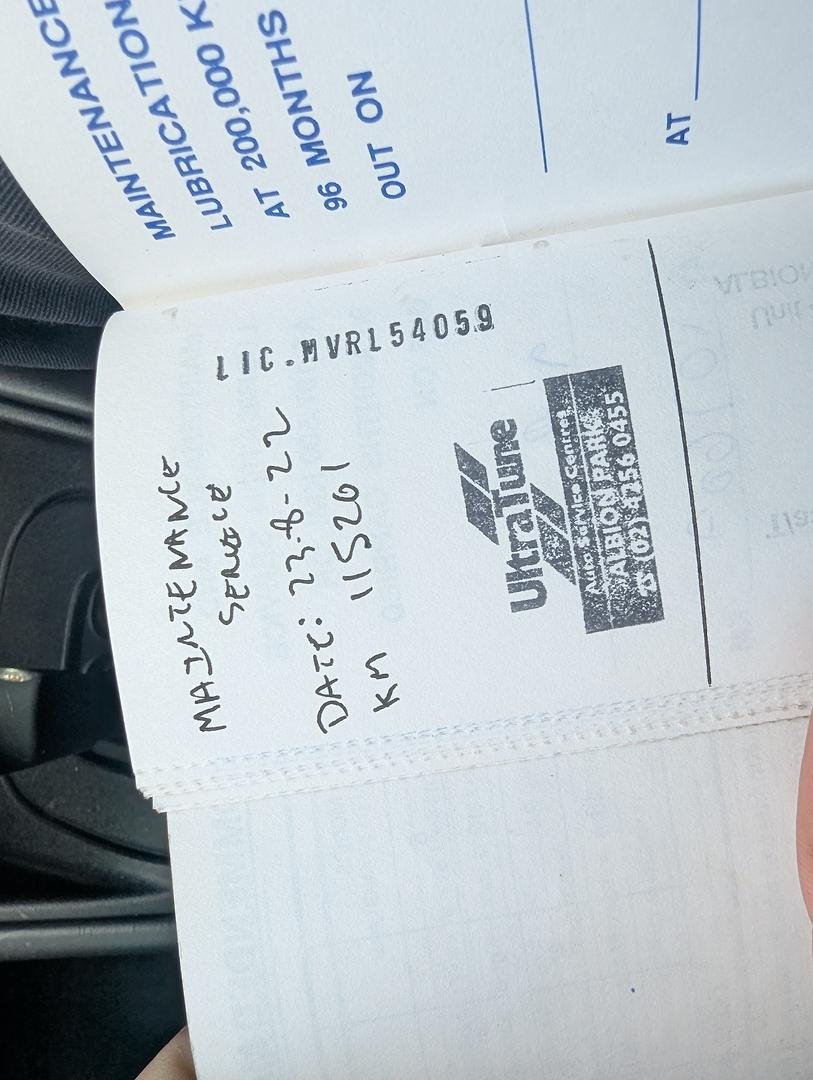 MAINTENANCE
LUBRICATION
AT 200,000 K
96 MONTHS
OUT ON
AT
LIC.MVRL54059
MAINTENANCE
SERVICE
DATE: 23-8-22
KM 115261
UltraTune
Auto Service Centres
ALBION PARK
☎ (02) 4256 0455
ALBION
Unit